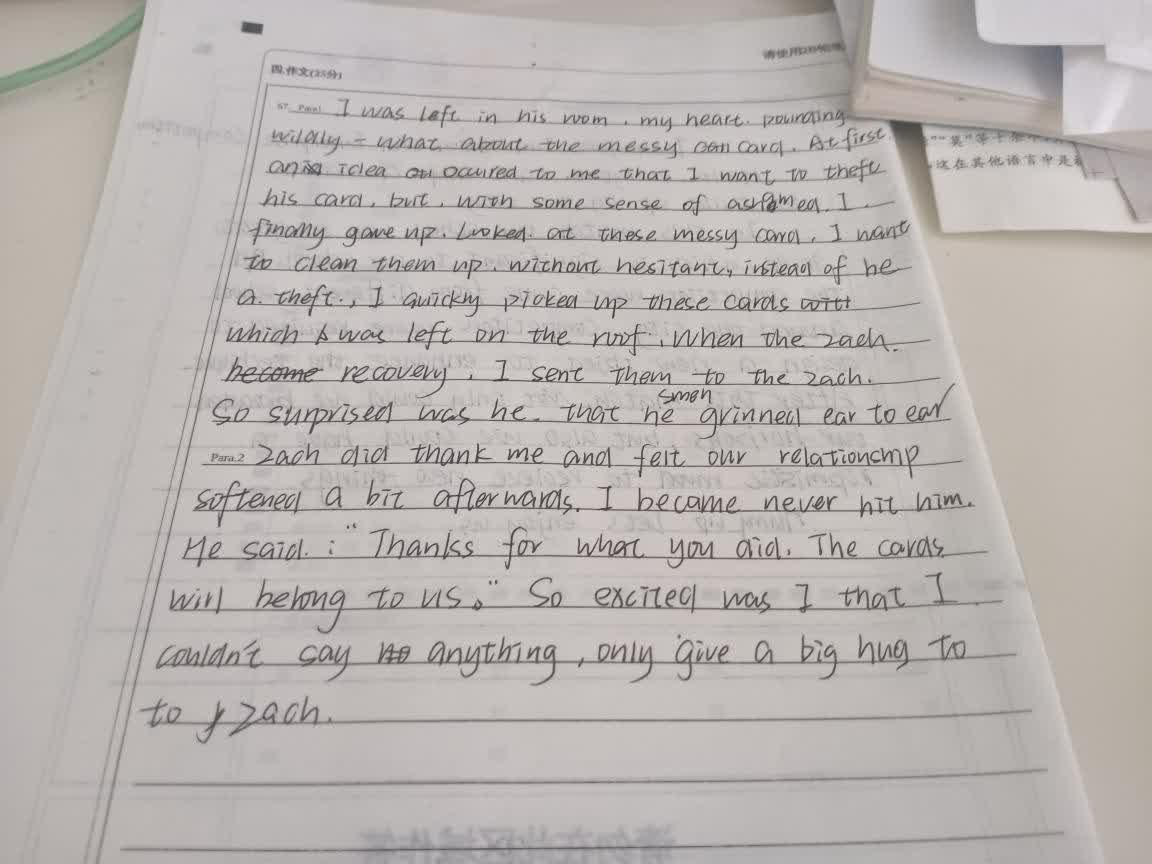 请使用2B铅笔
四.作文(25分)
67. Para1 I was left in his room, my heart pounding
wildly - what about the messy card. At first
an idea occured to me that I want to theft
his card, but, with some sense of ashamed, I
finally gave up. Looked at these messy card, I want
to clean them up. without hesitant, instead of be
a theft., I quickly picked up these cards with
which was left on the roof. When the zach.
become recovery, I sent them to the zach.
So surprised was he that he grinned ear to ear
Para.2 Zach did thank me and felt our relationship
softened a bit afterwards. I became never hit him.
He said.: "Thanks for what you did. The cards
will belong to us." So excited was I that I
couldn't say no anything, only give a big hug to
to y zach.
这在其他语言中是